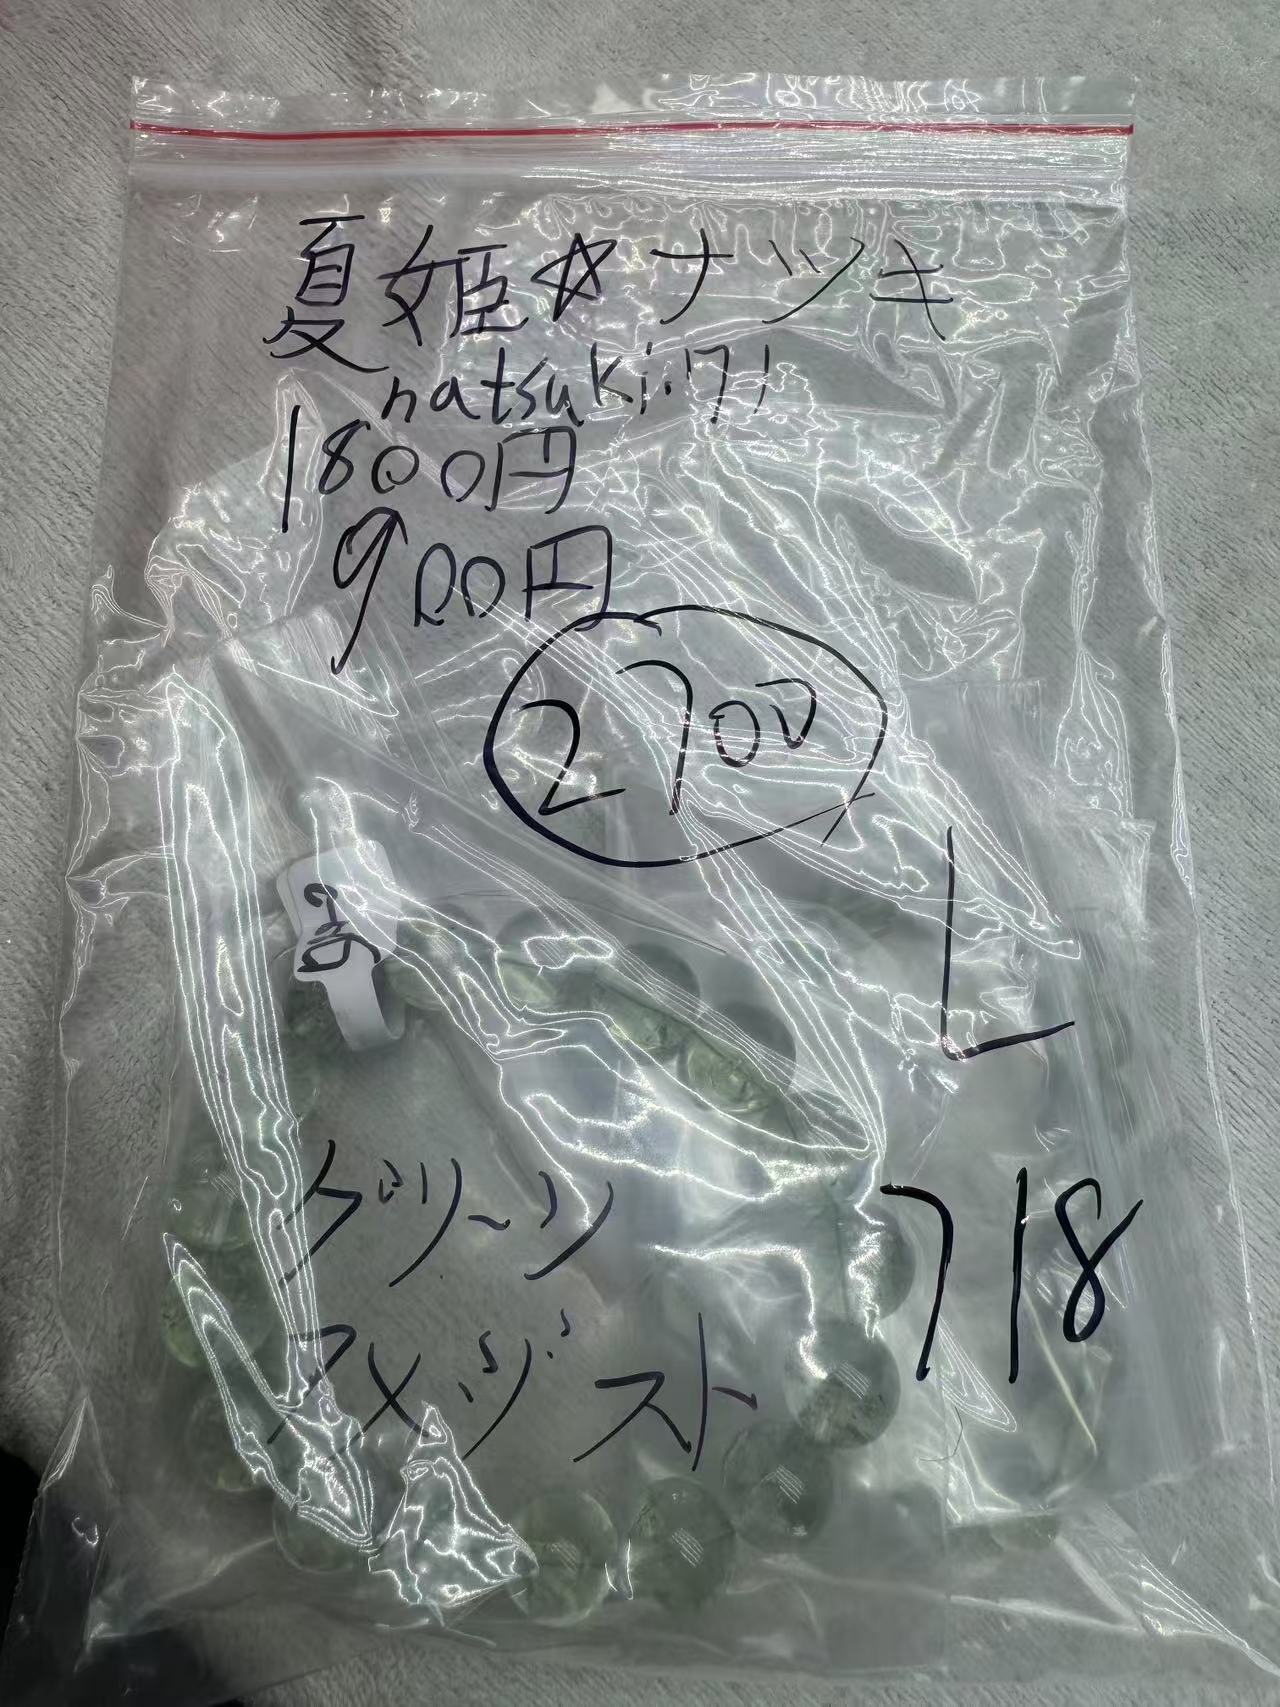 夏姫☆ナツキ
natsuki.171
1800円
900円
2700
L
グリーン
アメジスト
718